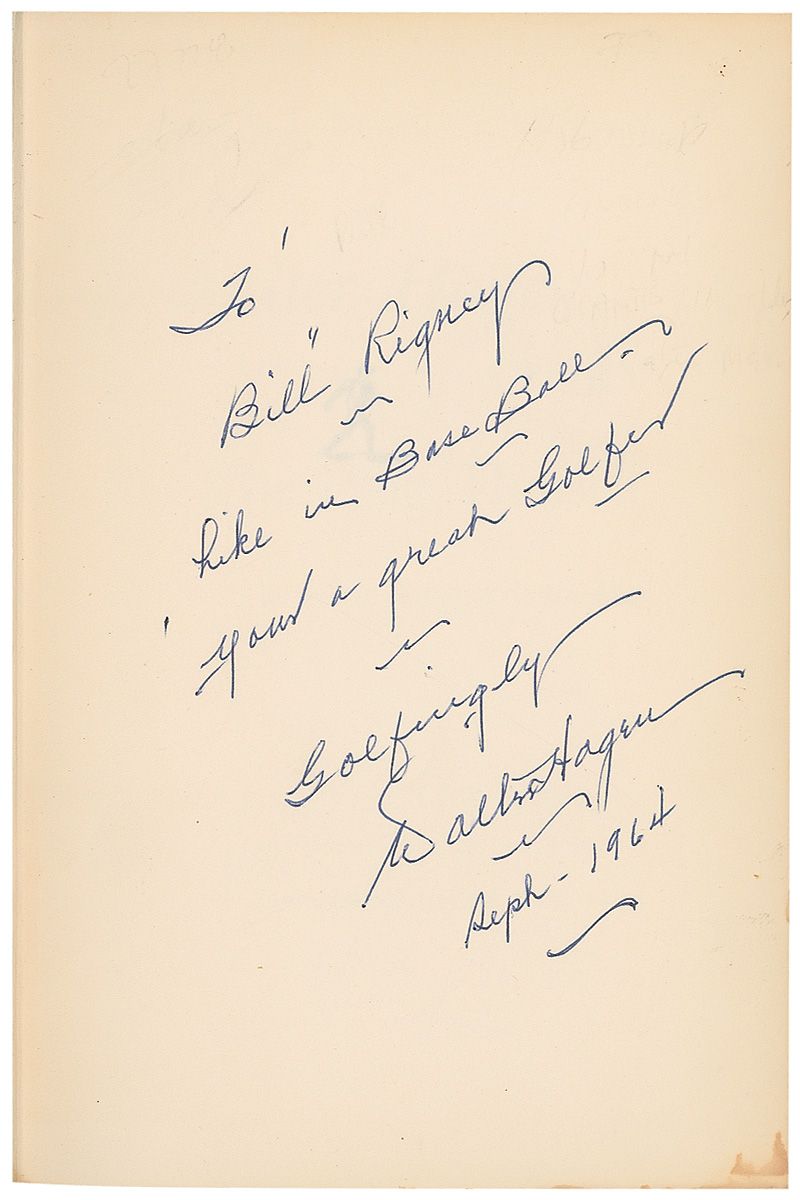 To
"Bill" Rigney
Like in Base Ball
your a great Golfer
Golfingly
Walter Hagen
Sept - 1964